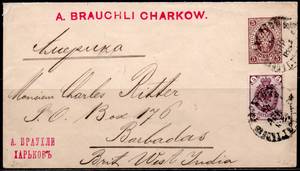 A. BRAUCHLI CHARKOW.
Америка
Monsieur Charles Ritter
P. O. Box 176
Barbadas
Brit. West India
А. БРАУХЛИ
ХАРЬКОВЪ
5
5